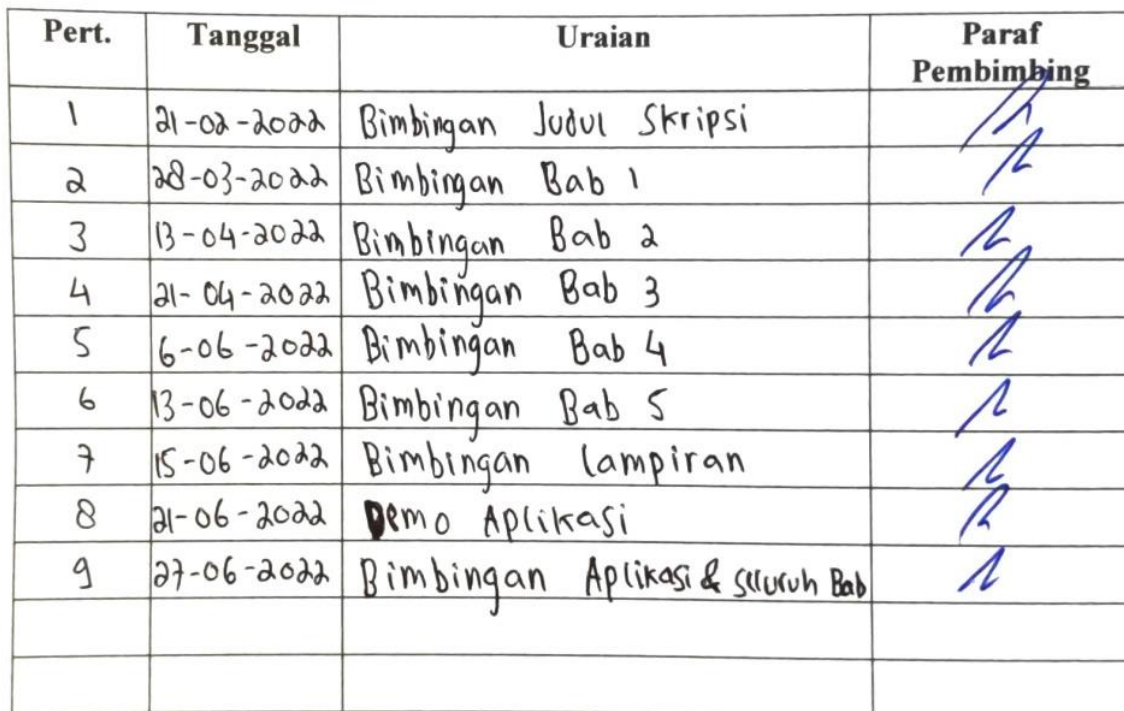 Pert. Tanggal Uraian Paraf
Pembimbing
1 21-02-2022 Bimbingan Judul Skripsi
2 28-03-2022 Bimbingan Bab 1
3 13-04-2022 Bimbingan Bab 2
4 21-04-2022 Bimbingan Bab 3
5 6-06-2022 Bimbingan Bab 4
6 13-06-2022 Bimbingan Bab 5
7 15-06-2022 Bimbingan Lampiran
8 21-06-2022 Demo Aplikasi
9 27-06-2022 Bimbingan Aplikasi & seluruh Bab